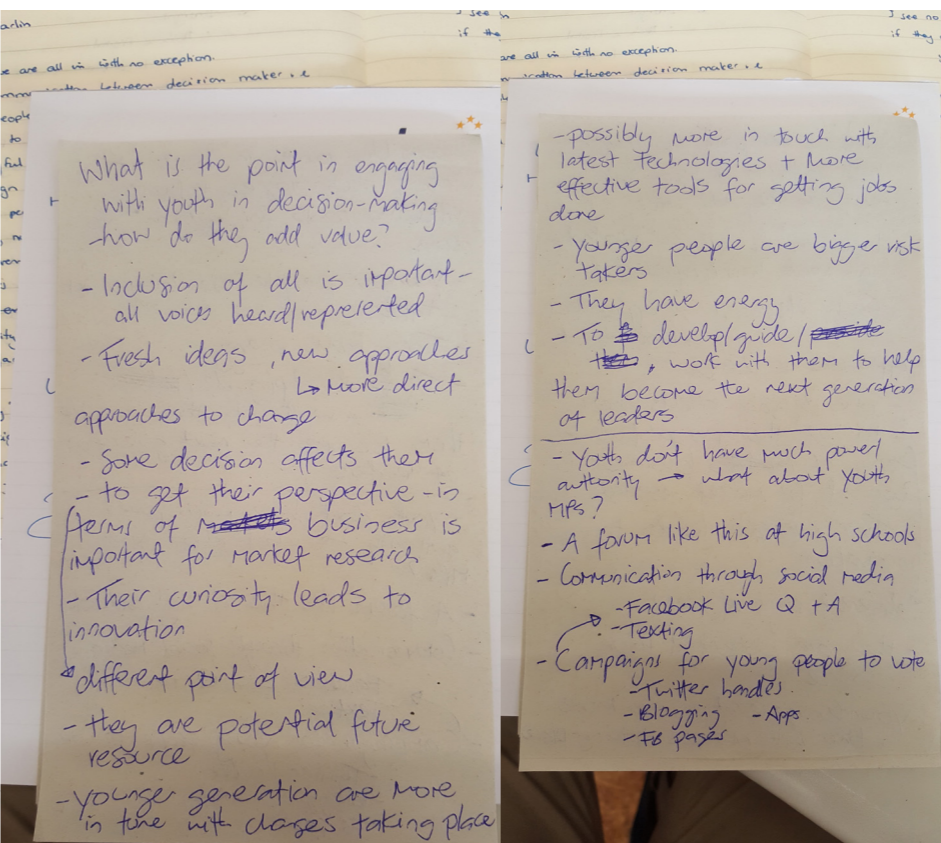 arlin
I see
if the
are all in with no exception.
between decision maker
What is the point in engaging
with youth in decision-making
-how do they add value?
- Inclusion of all is important-
all voices heard/represented
- Fresh ideas, new approaches
↳ More direct
approaches to change
- Some decision affects them
- to get their perspective - in
terms of business is
important for market research
- Their curiosity leads to
innovation
different point of view
- they are potential future
resource
- younger generation are more
in tune with changes taking place
I see no
if they
are all in with no exception.
between decision maker
- possibly more in touch with
latest technologies + More
effective tools for getting jobs
done
- Younger people are bigger risk
takers
- They have energy
- To develop/guide/
, work with them to help
them become the next generation
of leaders
- Youth don't have much power/
authority → what about Youth
MPs?
- A forum like this at high schools
- Communication through social media
- Facebook Live Q + A
- Texting
- Campaigns for young people to vote
- Twitter handles
- Blogging - Apps
- FB pages